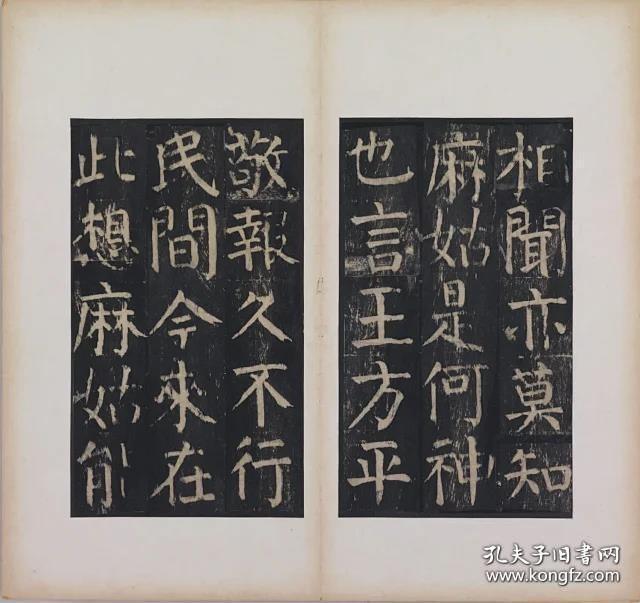 相聞亦莫知
麻姑是何神
也言王方平
敬報久不行
民間今來在
此想麻姑能
孔夫子旧书网
www.kongfz.com